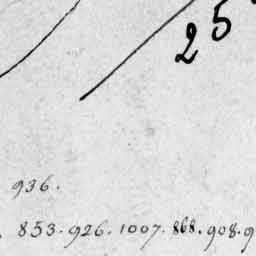 25
936.
853. 926. 1007. 868. 908. 9